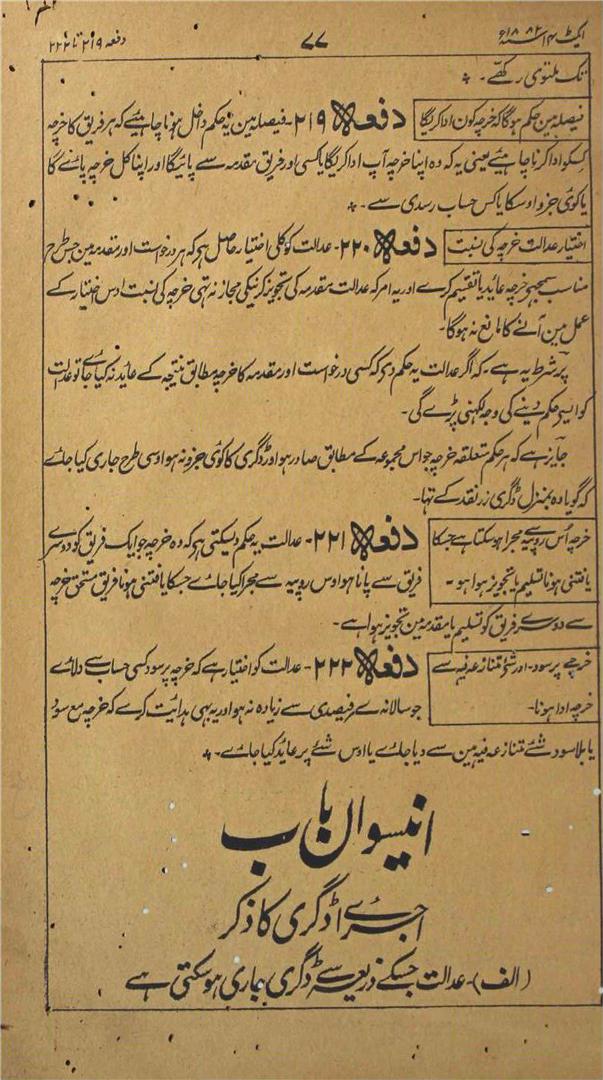 ایکٹ ۱۴ سنہ ۱۸۸۲ء
۷۷
دفعہ ۲۱۹ تا ۲۲۲
تک ملتوی رکھے۔
فیصلہ مین حکم ہوگا کہ خرچہ کون ادا کریگا
دفعہ ۲۱۹- فیصلہ مین یہ حکم داخل ہونا چاہئے کہ ہر فریق کا خرچہ
کسکو ادا کرنا چاہئے یعنی یہ کہ وہ اپنا خرچہ آپ ادا کریگا یا کسی اور فریق مقدمہ سے پائیگا اور اپنا کل خرچہ پائے گا
یا کوئی جزو اوسکا یا کس حساب رسدی سے۔
اختیار عدالت خرچہ کی نسبت
دفعہ ۲۲۰- عدالت کو کلی اختیار حاصل ہی کہ ہر درخواست اور مقدمہ مین جس طرح
مناسب سمجھے خرچہ عائد یا تقسیم کرے اور یہ امر کہ عدالت مقدمہ کی تجویز کرنیکی مجاز نہ تہی خرچہ کی نسبت اوس اختیار کے
عمل مین آنے کا مانع نہ ہوگا۔
پر شرط یہ ہے۔ کہ اگر عدالت یہ حکم دی کہ کسی درخواست اور مقدمہ کا خرچہ مطابق نتیجہ کے عاید نہ کیا جاے تو عدالت
کو ایسے حکم دینے کی وجہ لکھنی پڑے گی۔
جایز ہے کہ ہر حکم متعلقہ خرچہ جو اس مجموعہ کے مطابق صادر ہو اور ڈگری کا کوئی جزو نہ ہو اوسی طرح جاری کیا جاے
کہ گویا وہ بمنزل ڈگری زر نقد کے تہا۔
خرچہ اُس روپیہ سے مجرا ہو سکتا ہے جسکا
یافتنی ہونا تسلیم یا تجویز ہوا ہو۔
دفعہ ۲۲۱- عدالت یہ حکم دیسکتی ہی کہ وہ خرچہ جو ایک فریق کو دوسرے
فریق سے پانا ہو اوس روپیہ سے مجرا کیا جاے جسکا یافتنی ہونا فریق مستحق خرچہ
سے دوسرے فریق کو تسلیم یا مقدمہ مین تجویز ہوا ہے۔
خرچے پر سود- اور شئے متنازعہ فیہ سے
خرچہ ادا ہونا۔
دفعہ ۲۲۲- عدالت کو اختیار ہے کہ خرچہ پر سود کسی حساب سے دلاے
جو سالانہ فیصدی سے زیادہ نہ ہو اور یہ بہی ہدایت کرے کہ خرچہ مع سود
یا بلا سود شئے متنازعہ فیہ مین سے دیا جاے یا اوس شئے پر عائد کیا جاے۔
انیسوان باب
اجراے ڈگری کا ذکر
(الف)- عدالت جسکے ذریعہ سے ڈگری جاری ہو سکتی ہے